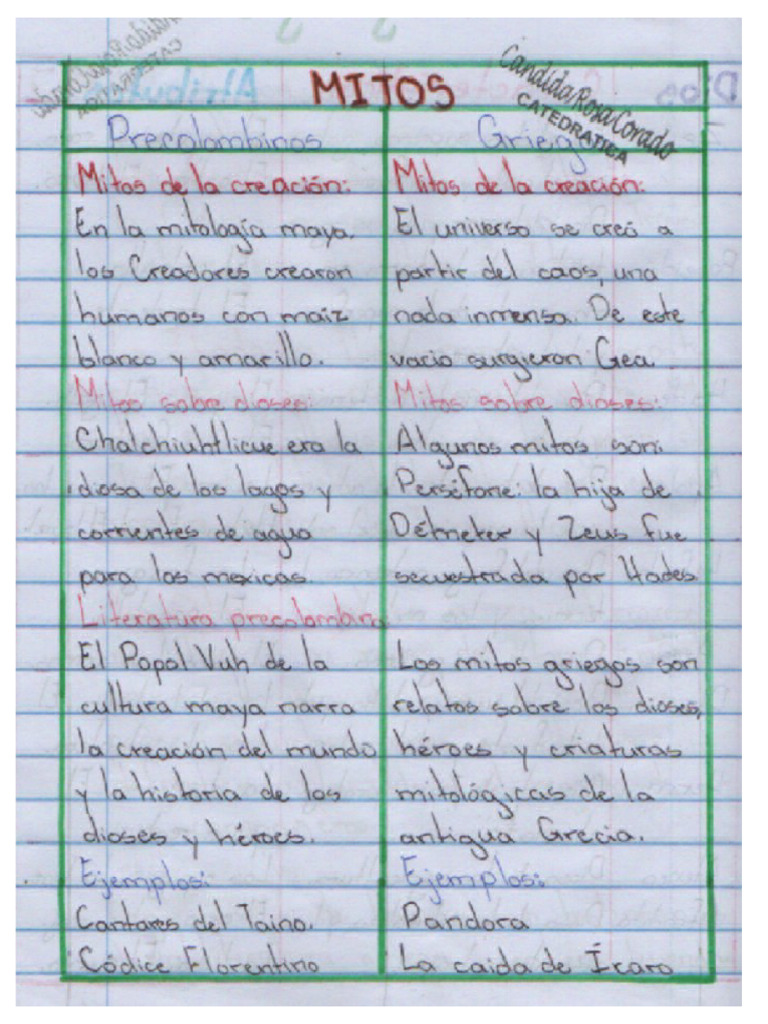 MITOS
Candida Rosa Corado
CATEDRATICA
Precolombinos
Mitos de la creación:
En la mitología maya.
los Creadores crearon
humanos con maiz
blanco y amarillo.
Mitos sobre dioses:
Chalchiuhtlicue era la
diosa de los lagos y
corrientes de agua
para los mexicas.
Literatura precolombina
El Popol Vuh de la
cultura maya narra
la creación del mundo
y la historia de los
dioses y héroes.
Ejemplos:
Cantares del Taino.
Códice Florentino
Mitos de la creación:
El universo se creó a
partir del caos, una
nada inmensa. De este
vacio surgieron Gea.
Mitos sobre dioses:
Algunos mitos son:
Perséfone: la hija de
Démeter y Zeus fue
secuestrada por Hades.
Los mitos griegos son
relatos sobre los dioses,
héroes y criaturas
mitológicas de la
antigua Grecia.
Ejemplos:
Pandora
La caida de Ícaro